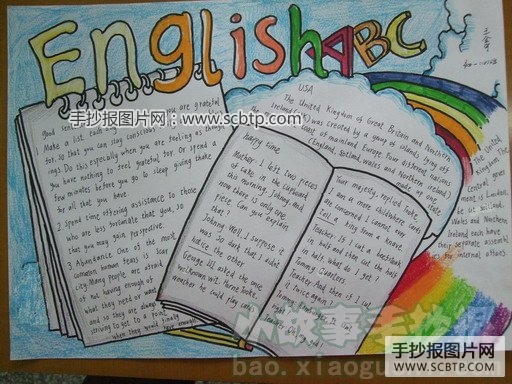 English ABC
手抄报图网：www.scbtp.com
you are grateful
1 Make a list each
for, so that you can stay conscious
Do this especially when you are feeling as though
you have nothing to feel grateful for or spend a
few minutes before you go to sleep giving thanks
for all that you have.
2 Spend time offering assistance to those
who are less fortunate than you, so
that you may gain perspective.
3 Abundance One of the most
common human fears is scar
city. Many people are afraid
of not having enough of
what they need or want
and so they are always
striving to get to a point
when they would finally
have enough
USA
The United Kingdom of Great Britain and Northern
Ireland was created by a group of islands lying off
coast of mainland Europe Four different nations
(England, Scotland, Wales and Northern Ireland)
Happy time
Mother: I left two pieces
of cake in the cupboard
this morning, Johnny. And
now there is only one
piece. Can you explain
that?
Johnny: Well, I suppose it
was so dark that I didn't
notice the other
George III asked the
Horne Tooke,
he could play cards
Your majesty, replied Tooke,
I am in more childhood cards
are concerned I cannot even
tell a king from a knave.
Teacher: If I cut a beefsteak
in half and then cut the half
in half, what do I get?
Tommy: Quarters.
Teacher: And then if I cut
it twice again?
Teacher: Oh my god!
The United
Kingdom The
Central gover
Wales and Northern
Ireland each have
their separate assembl
for internal affairs.
从故事手抄报
bao.xiaogu
手抄报图片网：
www.scbtp.com